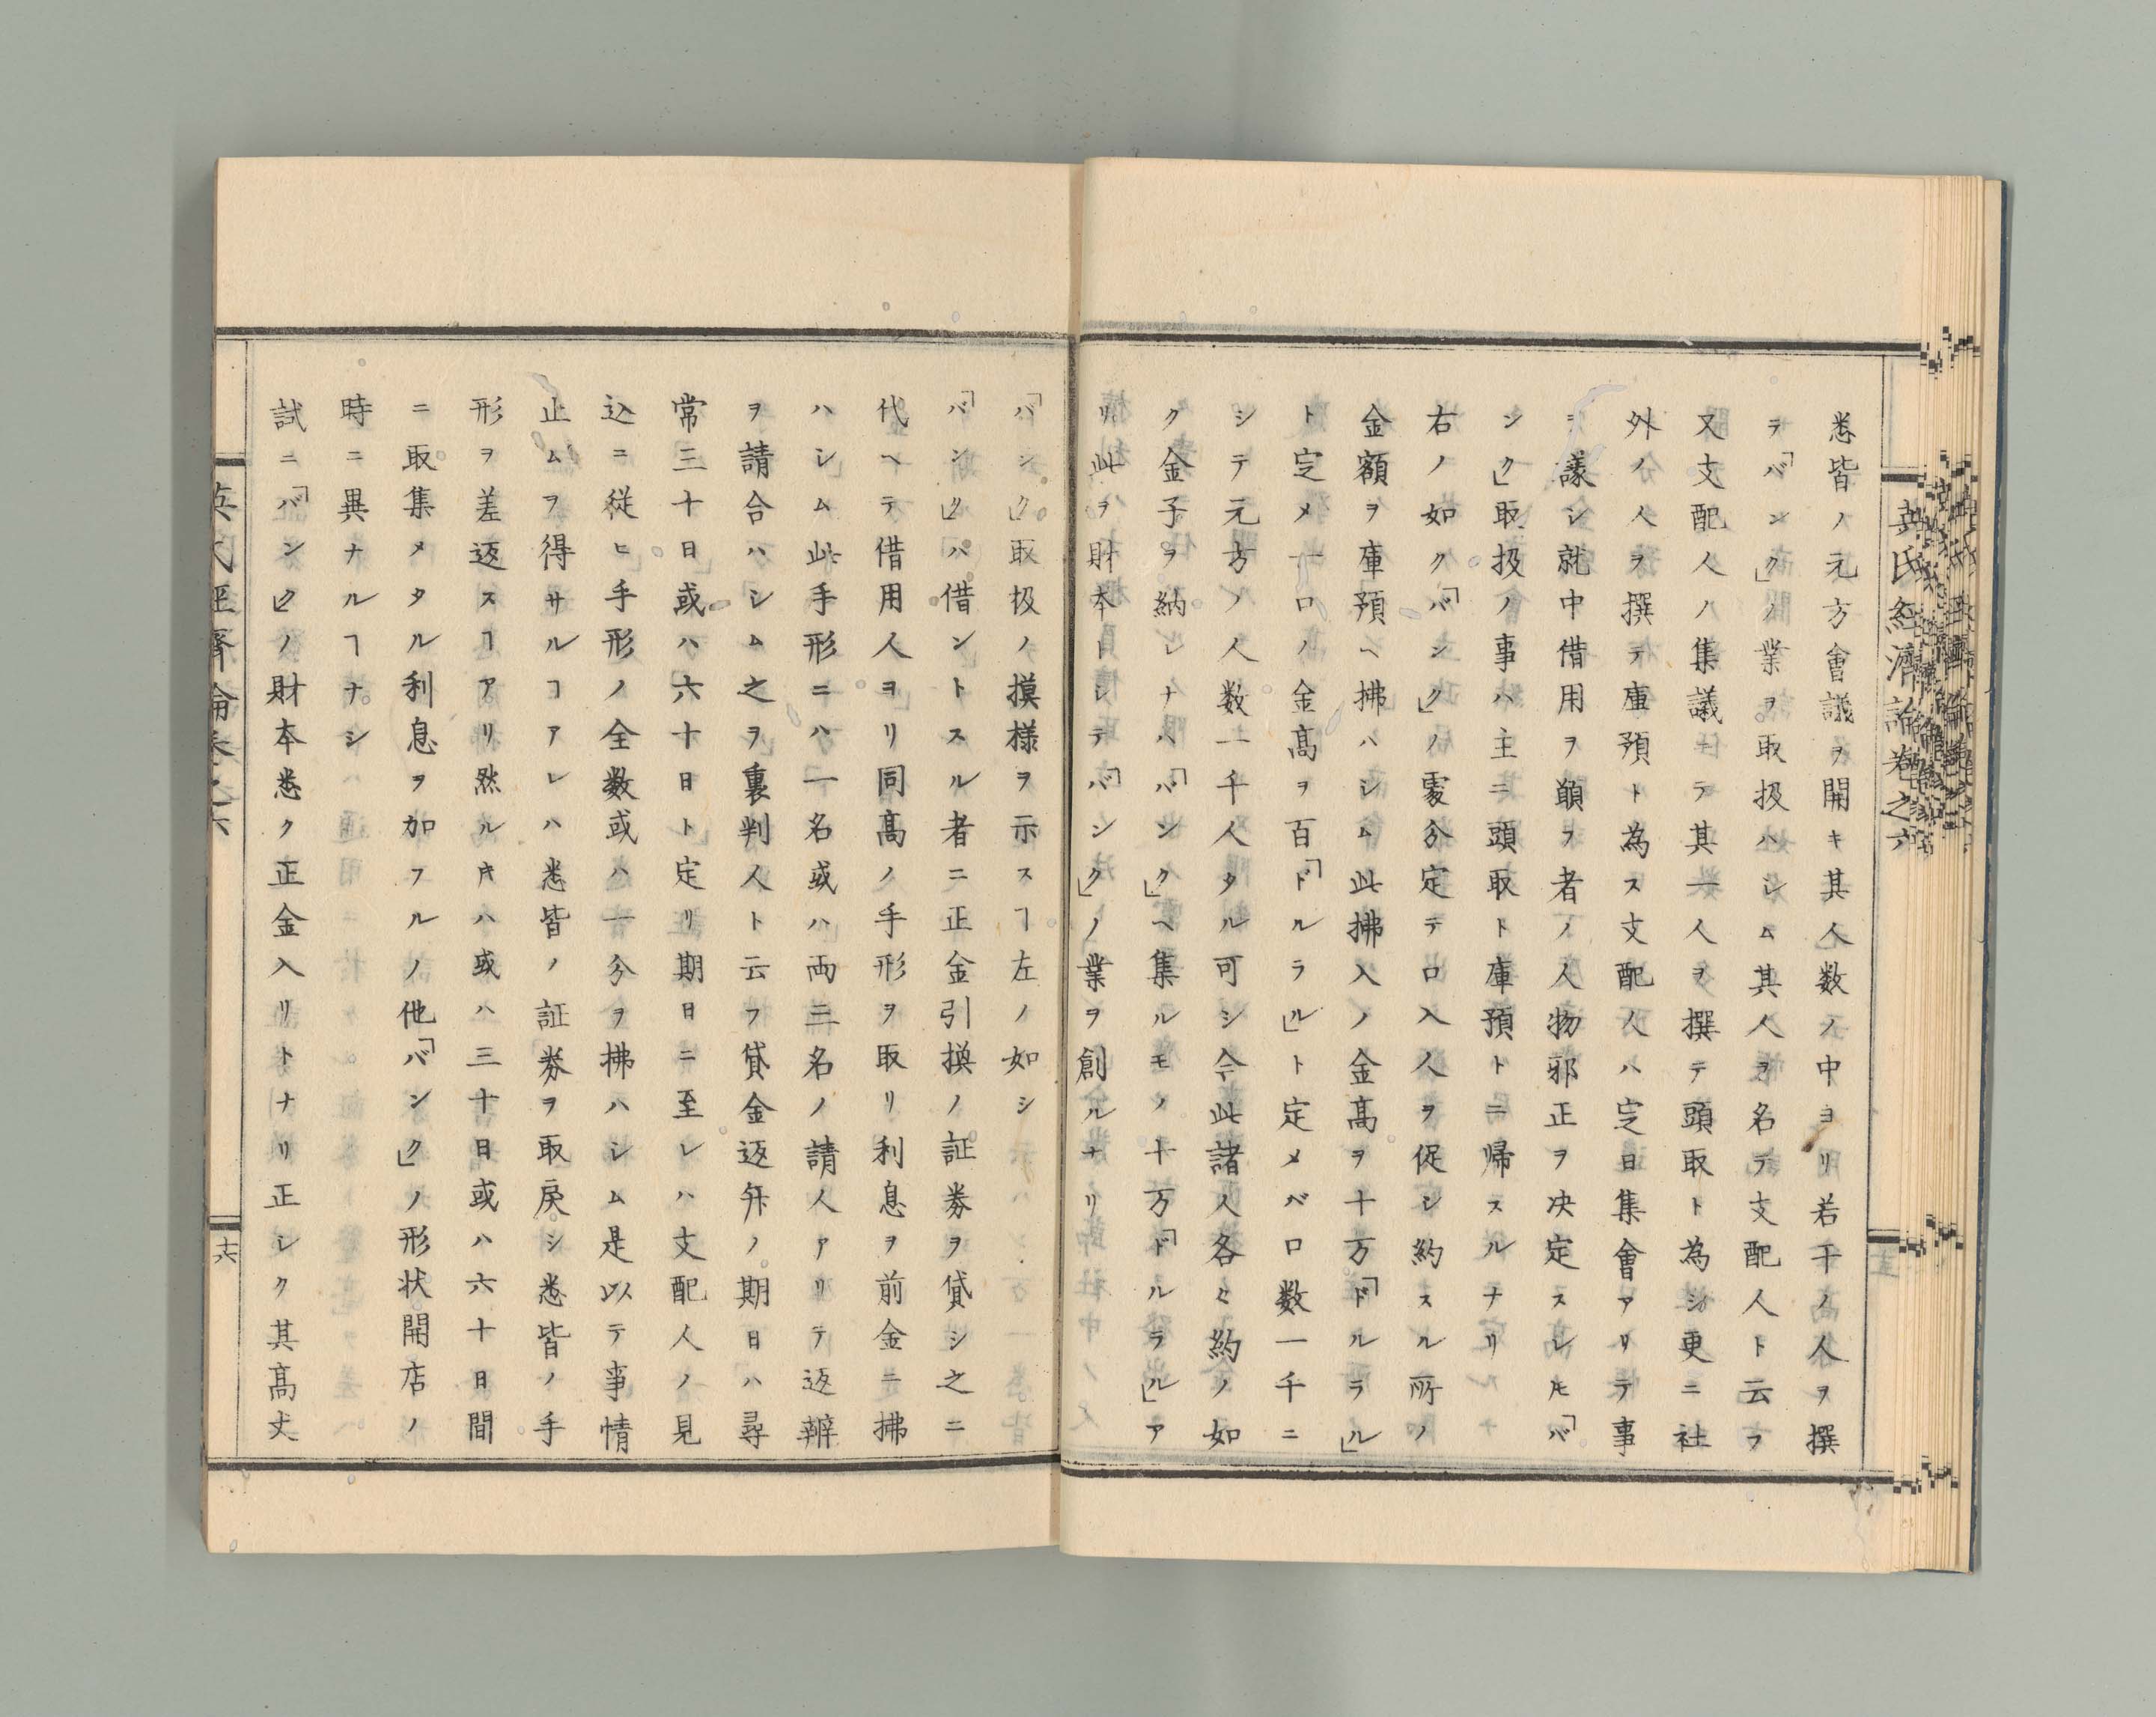 英氏經濟論卷之六
悉皆ノ元方會議ヲ開キ其人数ノ中ヨリ若干ノ人ヲ撰
ヲ「バンク」ノ業ヲ取扱ハシム其人ヲ名テ支配人ト云フ
又支配人ハ集議ナテ其一人ヲ撰テ頭取ト為シ更ニ社
外ノ人ヲ撰テ庫預ト為ス支配人ハ定日集會アリテ事
ヲ議シ就中借用ヲ願フ者ノ人物邪正ヲ决定スレ𪜈「バ
ンク」取扱ノ事ハ主ニ頭取ト庫預トニ帰スルナリ
右ノ如ク「バンク」ノ處分定テ口入人ヲ促シ約スル所ノ
金額ヲ庫預ヘ拂ハシム此拂入ノ金髙ヲ十万「ドルラル」
ト定メ一口ノ金髙ヲ百「ドルラル」ト定メバ口数一千ニ
シテ元方ノ人数一千人タル可シ今此諸人各々約ノ如
ク金子ヲ納レナハ「バンク」ヘ集ルモノ十万「ドルラル」ア
リ此ヲ財本トシテ「バンク」ノ業ヲ創ルナリ
「バンク」取扱ノ摸様ヲ示スヿ左ノ如シ
「バンク」ハ借ントスル者ニ正金引換ノ証券ヲ貸シ之ニ
代ヘテ借用人ヨリ同髙ノ手形ヲ取リ利息ヲ前金ニ拂
ハシム此手形ニハ一名或ハ両三名ノ請人アリテ返辨
ヲ請合ハシム之ヲ裏判人ト云フ貸金返弁ノ期日ハ尋
常三十日或ハ六十日ト定リ期日ニ至レハ支配人ノ見
込ニ従ヒ手形ノ全数或ハ一分ヲ拂ハシム是以テ事情
止ムヲ得サルヿアレハ悉皆ノ証券ヲ取戻シ悉皆ノ手
形ヲ差返スヿアリ然ルキハ或ハ三十日或ハ六十日間
ニ取集メタル利息ヲ加フルノ他「バンク」ノ形状開店ノ
時ニ異ナルヿナシ
試ニ「バンク」ノ財本悉ク正金入リトナリ正シク其髙丈
英氏經濟論卷之六
十六